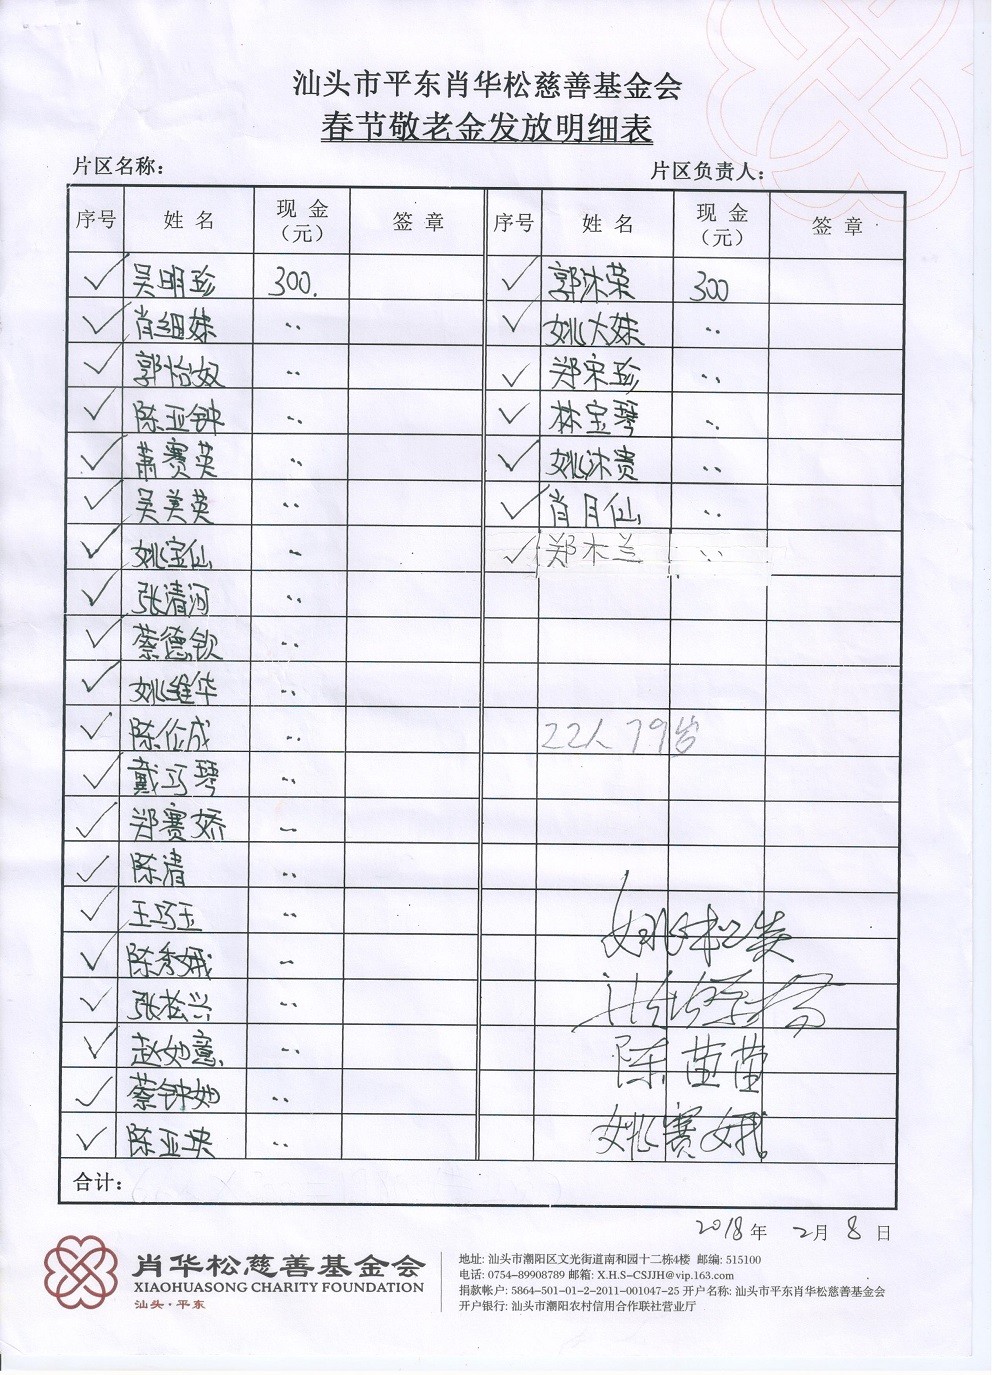 汕头市平东肖华松慈善基金会
春节敬老金发放明细表
片区名称： 片区负责人：
序号 姓名 现金（元） 签章 序号 姓名 现金（元） 签章
✓ 吴明珍 300. ✓ 郭沐荣 300
✓ 肖细妹 〃 ✓ 姚大妹 〃
✓ 郭怡奴 〃 ✓ 郑宋珍 〃
✓ 陈亚钟 〃 ✓ 林宝琴 〃
✓ 萧赛英 〃 ✓ 姚沐贵 〃
✓ 吴美英 〃 ✓ 肖月仙 〃
✓ 姚宝仙 〃 ✓ 郑木兰 〃
✓ 张清河 〃
✓ 蔡德钦 〃
✓ 姚维华 〃
✓ 陈伦成 〃 22人 79岁
✓ 戴巧琴 〃
✓ 郑赛娇 〃
✓ 陈清 〃
✓ 王巧玉 〃
✓ 陈秀娥 〃
✓ 张松兴 〃
✓ 赵如意 〃 陈莹莹
✓ 蔡钟 〃
✓ 陈亚 〃 姚赛娥
合计：
2018年 2月 8日
肖华松慈善基金会
XIAOHUASONG CHARITY FOUNDATION
汕头·平东
地址: 汕头市潮阳区文光街道南和园十二栋4楼 邮编: 515100
电话: 0754-89908789 邮箱: X.H.S-CSJJH@vip.163.com
捐款帐户: 5864-501-01-2-2011-001047-25 开户名称: 汕头市平东肖华松慈善基金会
开户银行: 汕头市潮阳农村信用合作联社营业厅